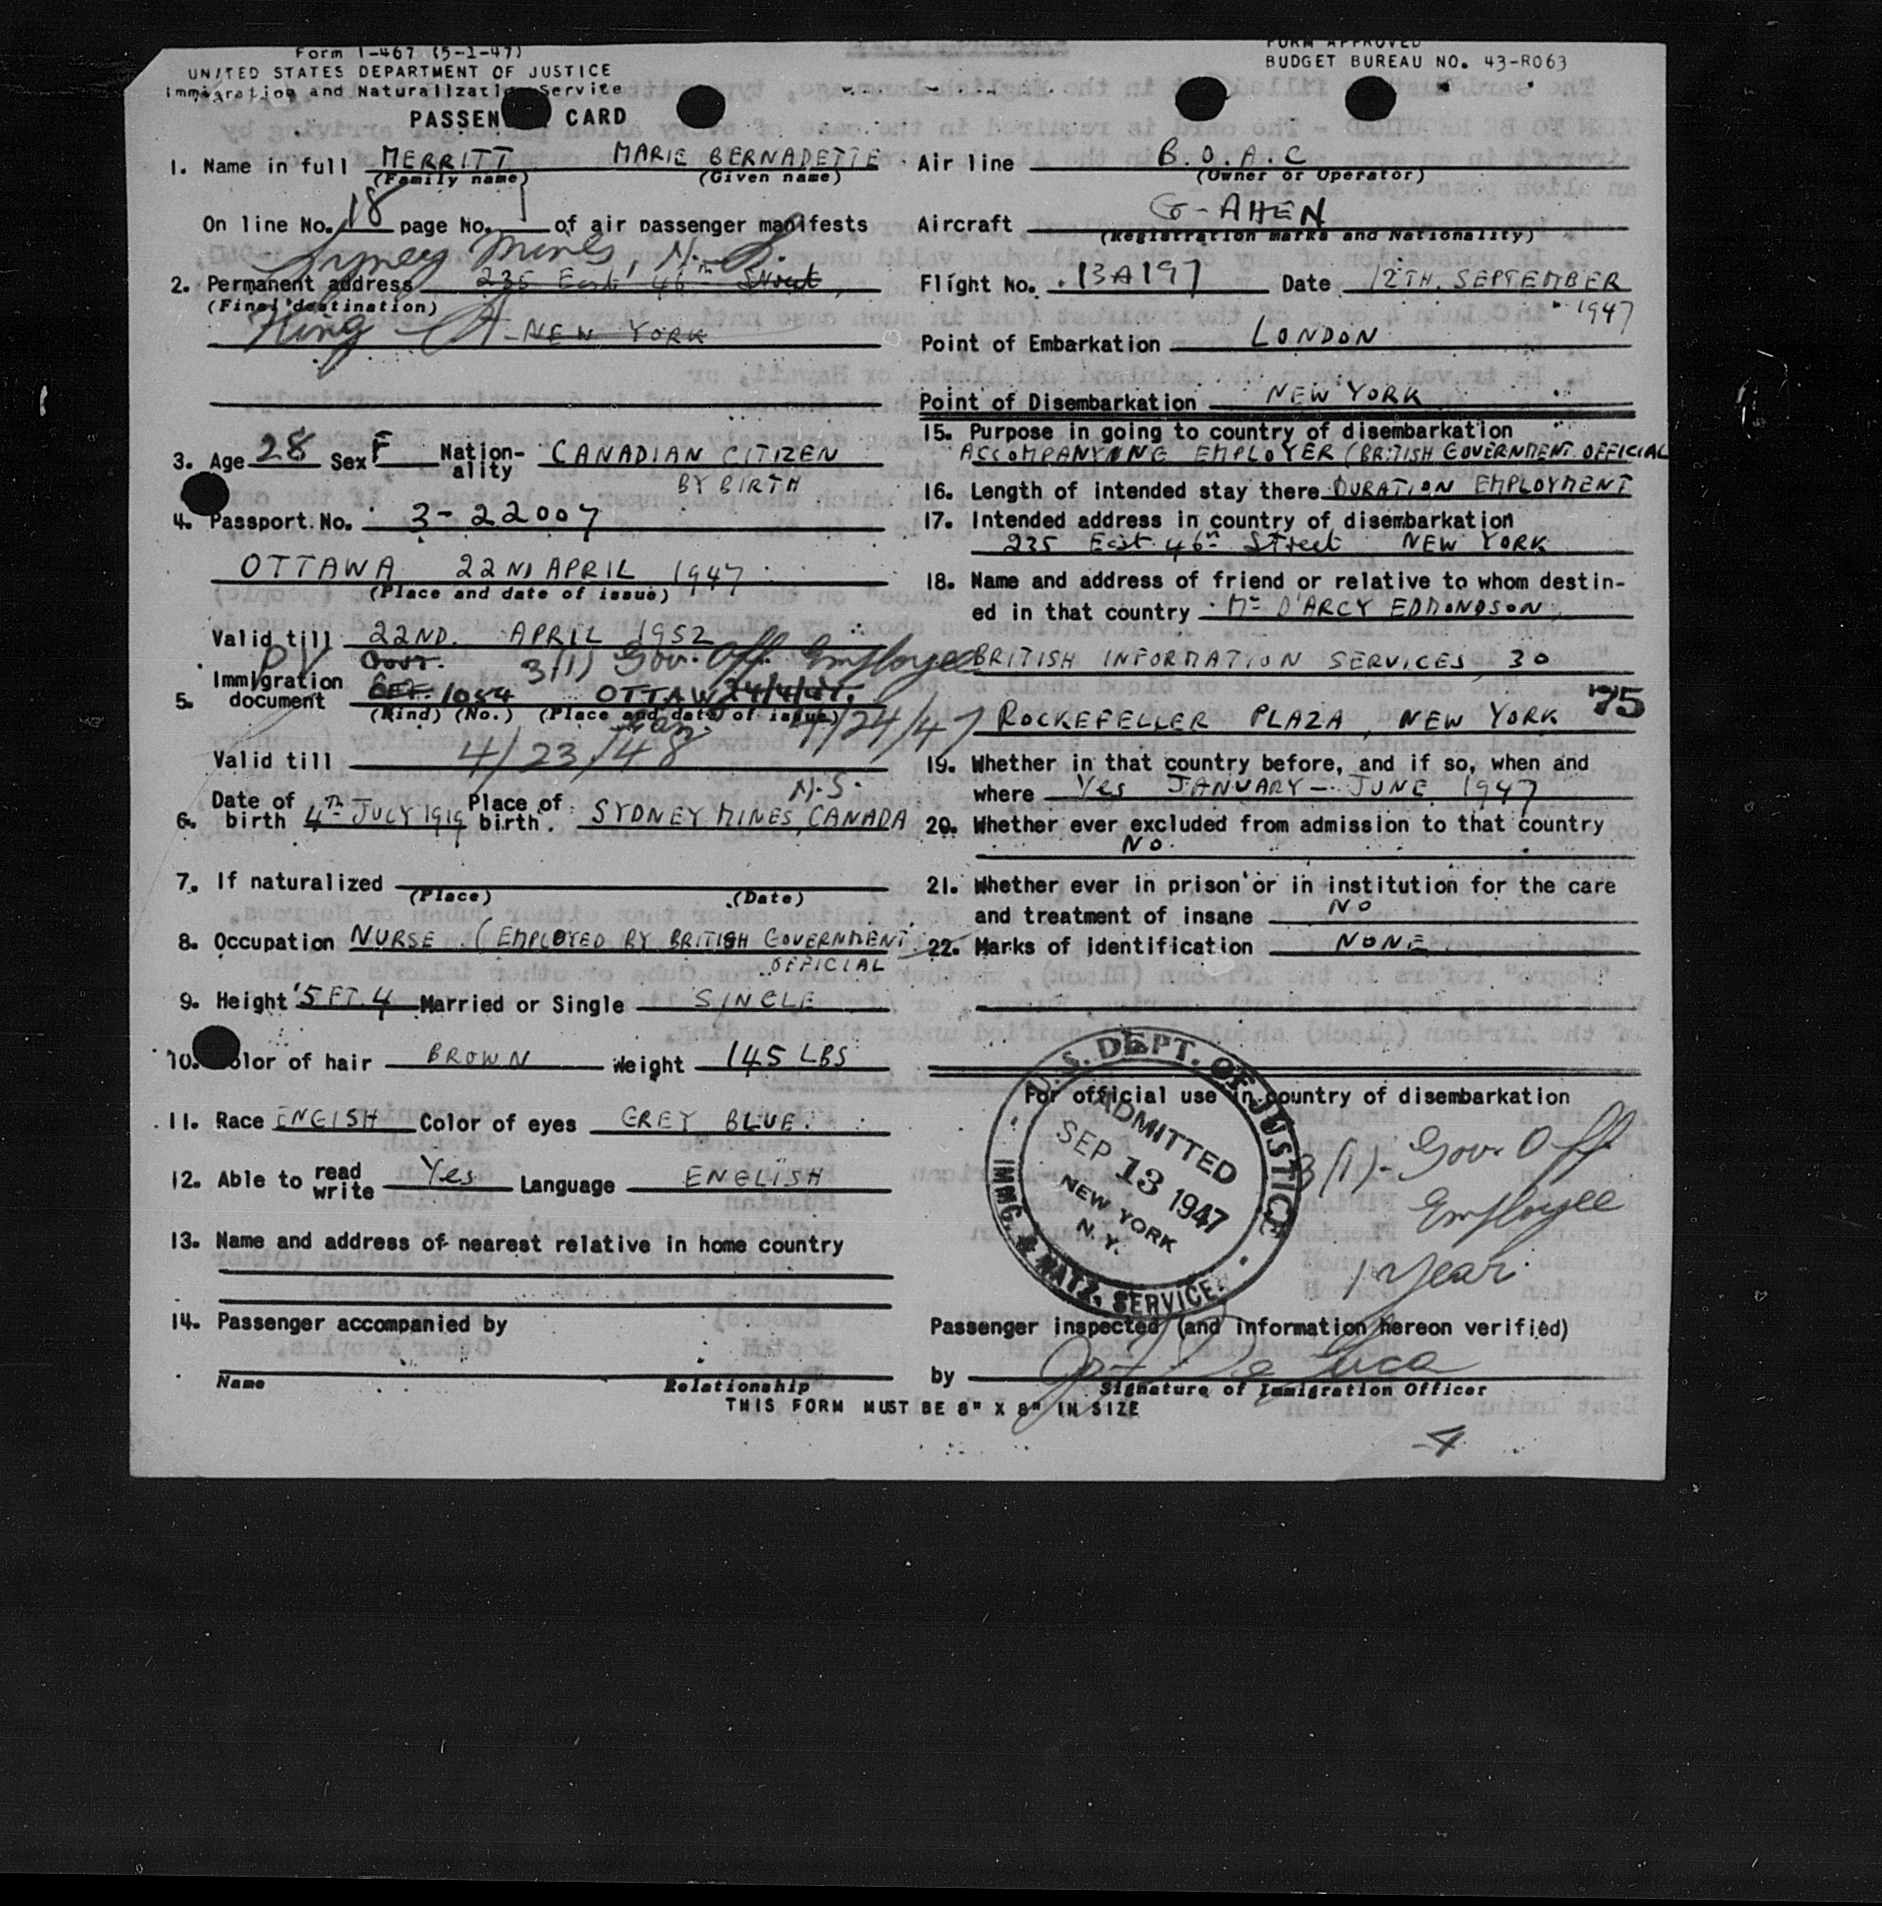 Form I-467 (5-1-47)
UNITED STATES DEPARTMENT OF JUSTICE
Immigration and Naturalization Service
PASSEN CARD
FORM APPROVED
BUDGET BUREAU NO. 43-R063
1. Name in full MERRITT MARIE BERNADETTE
(Family name) (Given name)
On line No. 18 page No. 1 of air passenger manifests
Sydney Mines, N.S.
2. Permanent address 235 East 46th Street,
(Final destination)
King St NEW YORK
3. Age 28 Sex F Nation-ality CANADIAN CITIZEN
BY BIRTH
4. Passport No. 3-22007
OTTAWA 22ND APRIL 1947
(Place and date of issue)
Valid till 22ND. APRIL 1952
PV Govt. 3(1) Gov. Off. Employee
5. Immigration document OFF. 1054 OTTAWA 24/4/47.
(Kind) (No.) (Place and date of issue)
4/24/47
Valid till 4/23/48
N.S.
6. Date of birth 4TH JULY 1919 Place of birth. SYDNEY MINES, CANADA
7. If naturalized
(Place) (Date)
8. Occupation NURSE (EMPLOYED BY BRITISH GOVERNMENT
OFFICIAL
9. Height 5FT.4 Married or Single SINGLE
10. Color of hair BROWN Weight 145 LBS
11. Race ENGISH Color of eyes GREY BLUE.
12. Able to read write Yes Language ENGLISH
13. Name and address of nearest relative in home country
14. Passenger accompanied by
Name Relationship
Air line B.O.A.C
(Owner or Operator)
Aircraft G-AHEN
(Registration marks and Nationality)
Flight No. BA197 Date 12TH. SEPTEMBER
1947
Point of Embarkation LONDON
Point of Disembarkation NEW YORK
15. Purpose in going to country of disembarkation
ACCOMPANYING EMPLOYER (BRITISH GOVERNMENT OFFICIAL
16. Length of intended stay there DURATION EMPLOYMENT
17. Intended address in country of disembarkation
235 East 46th Street NEW YORK
18. Name and address of friend or relative to whom destin-
ed in that country Mr D'ARCY EDMONDSON,
BRITISH INFORMATION SERVICES, 30
75
ROCKEFELLER PLAZA, NEW YORK
19. Whether in that country before, and if so, when and
where Yes JANUARY - JUNE 1947
20. Whether ever excluded from admission to that country
NO.
21. Whether ever in prison or in institution for the care
and treatment of insane NO
22. Marks of identification NONE
For official use in country of disembarkation
U.S. DEPT. OF JUSTICE
ADMITTED
SEP 13 1947
NEW YORK
N.Y.
IMMG. & NATZ. SERVICE.
3(1)- Gov. Off.
Employee
1 Year.
Passenger inspected (and information hereon verified)
by De Luca
Signature of Immigration Officer
THIS FORM MUST BE 8" X 8" IN SIZE
4